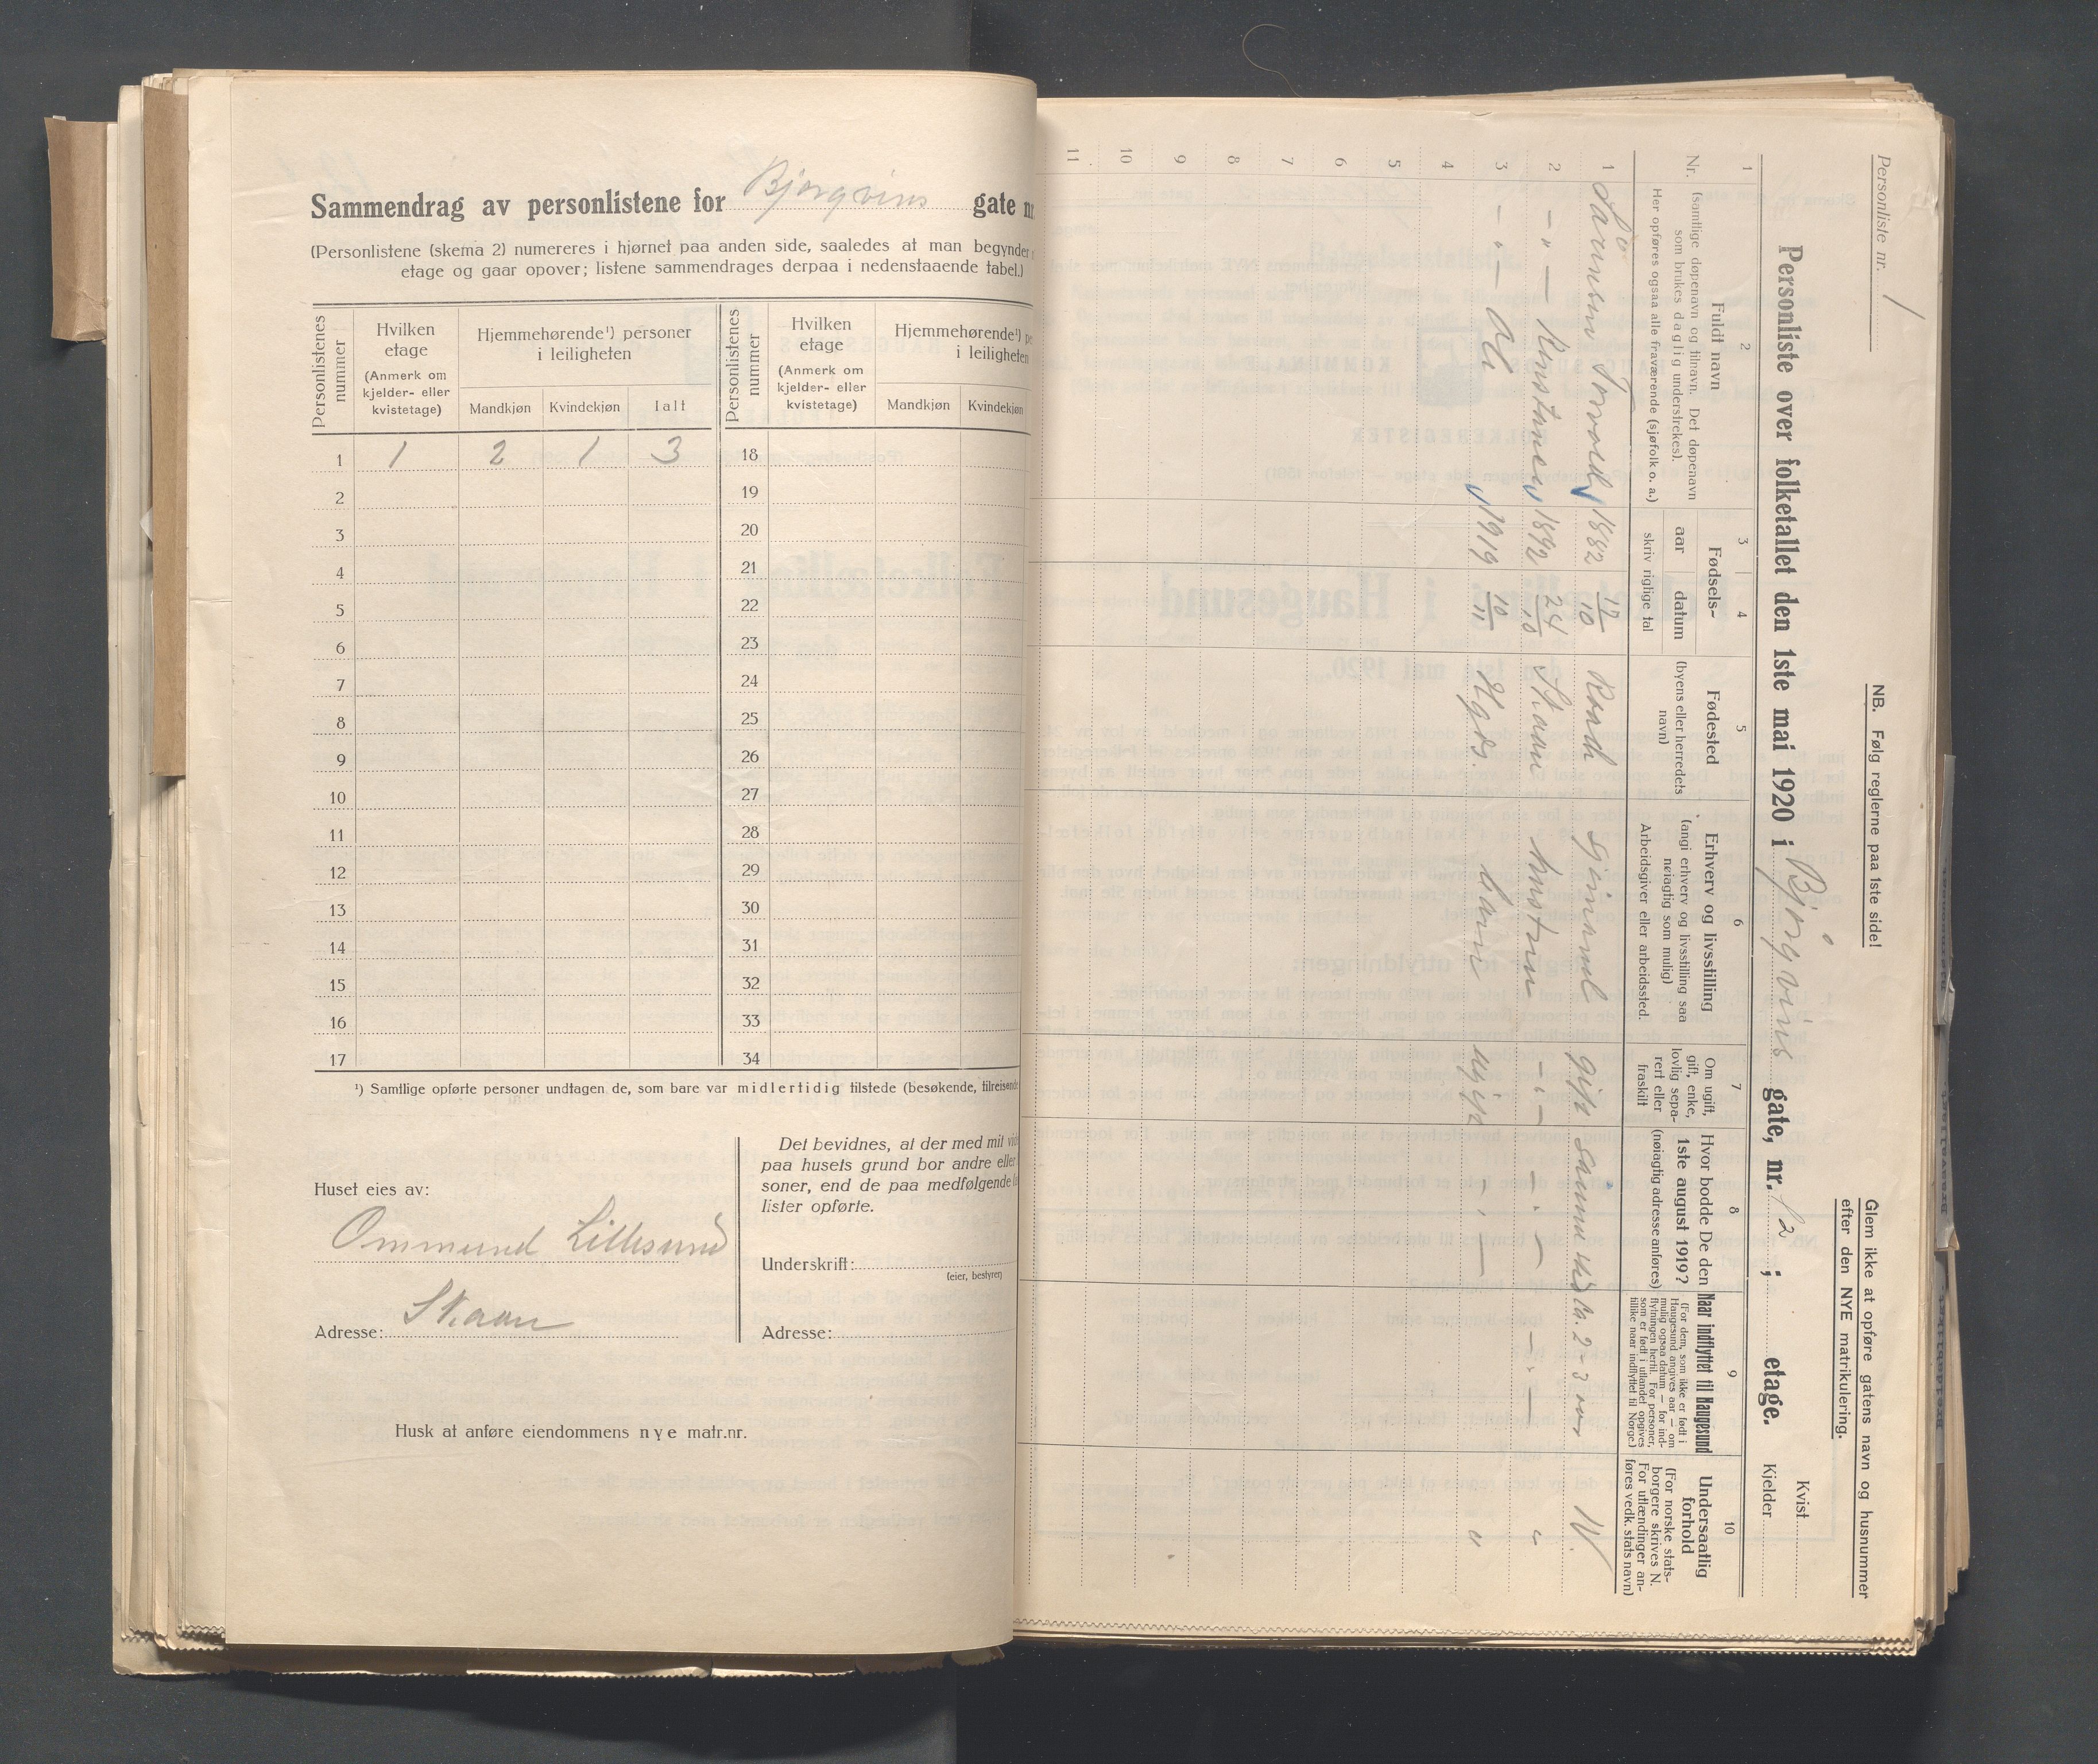 Sammendrag av personlistene for Bjørgvins gate nr.
(Personlistene (skema 2) numereres i hjørnet paa anden side, saaledes at man begynder
etage og gaar opover; listene sammendrages derpaa i nedenstaaende tabel.)
Personlistenes nummer
Hvilken etage (Anmerk om kjelder- eller kvistetage)
Hjemmehørende¹) personer i leiligheten
Mandkjøn Kvindekjøn Ialt
Personlistenes nummer
Hvilken etage (Anmerk om kjelder- eller kvistetage)
Hjemmehørende¹) i leiligheten
Mandkjøn Kvindekjøn
1 1 2 1 3 18
2 19
3 20
4 21
5 22
6 23
7 24
8 25
9 26
10 27
11 28
12 29
13 30
14 31
15 32
16 33
17 34
¹) Samtlige opførte personer undtagen de, som bare var midlertidig tilstede (besøkende, tilreisende
Huset eies av:
Ommund Lillesund
Adresse: Skaare
Det bevidnes, at der med mit
paa husets grund bor andre eller
soner, end de paa medfølgende
lister opførte.
Underskrift:
(eier, bestyrer)
Adresse:
Husk at anføre eiendommens nye matr.nr.
Personliste nr. 1
NB. Følg reglerne paa 1ste side!
Glem ikke at opføre gatens navn og husnummer
efter den NYE matrikulering.
Personliste over folketallet den 1ste mai 1920 i Bjørgvins gate, nr. 12 ; etage.
Kvist
Kjelder
1 2 3 4 5 6 7 8 9 10
Nr.
Fuldt navn
(samtlige døpenavn og tilnavn. Det døpenavn
som brukes daglig understrekes).
Her opføres ogsaa alle fraværende (sjøfolk o. a.)
Fødsels-
aar datum
skriv rigtige tal
Fødested
(byens eller herredets
navn)
Erhverv og livsstilling
(angi erhverv og livsstilling saa
nøiagtig som mulig)
Arbeidsgiver eller arbeidssted.
Om ugift,
gift, enke,
lovlig sepa-
rert eller
fraskilt
Hvor bodde De den
1ste august 1919?
(nøiagtig adresse anføres)
Naar indflyttet til Haugesund
(For dem, som ikke er født i
Haugesund angives aar — om
mulig ogsaa datum — for ind-
flytningen hertil. For personer,
som er født i utlandet opgives
tillike naar indflyttet til Norge.)
Undersaatlig
forhold
(For norske stats-
borgere skrives N.
For utlændinger an-
føres vedk. stats navn)
1 Torvald 1882 17/10 gift samme sted N.
2 -"- 1892 24/10 Skaare hustru -"- -"- -"- "
3 -"- 1919 10/11 Hgds. barn ugift -"- "
4
5
6
7
8
9
10
11